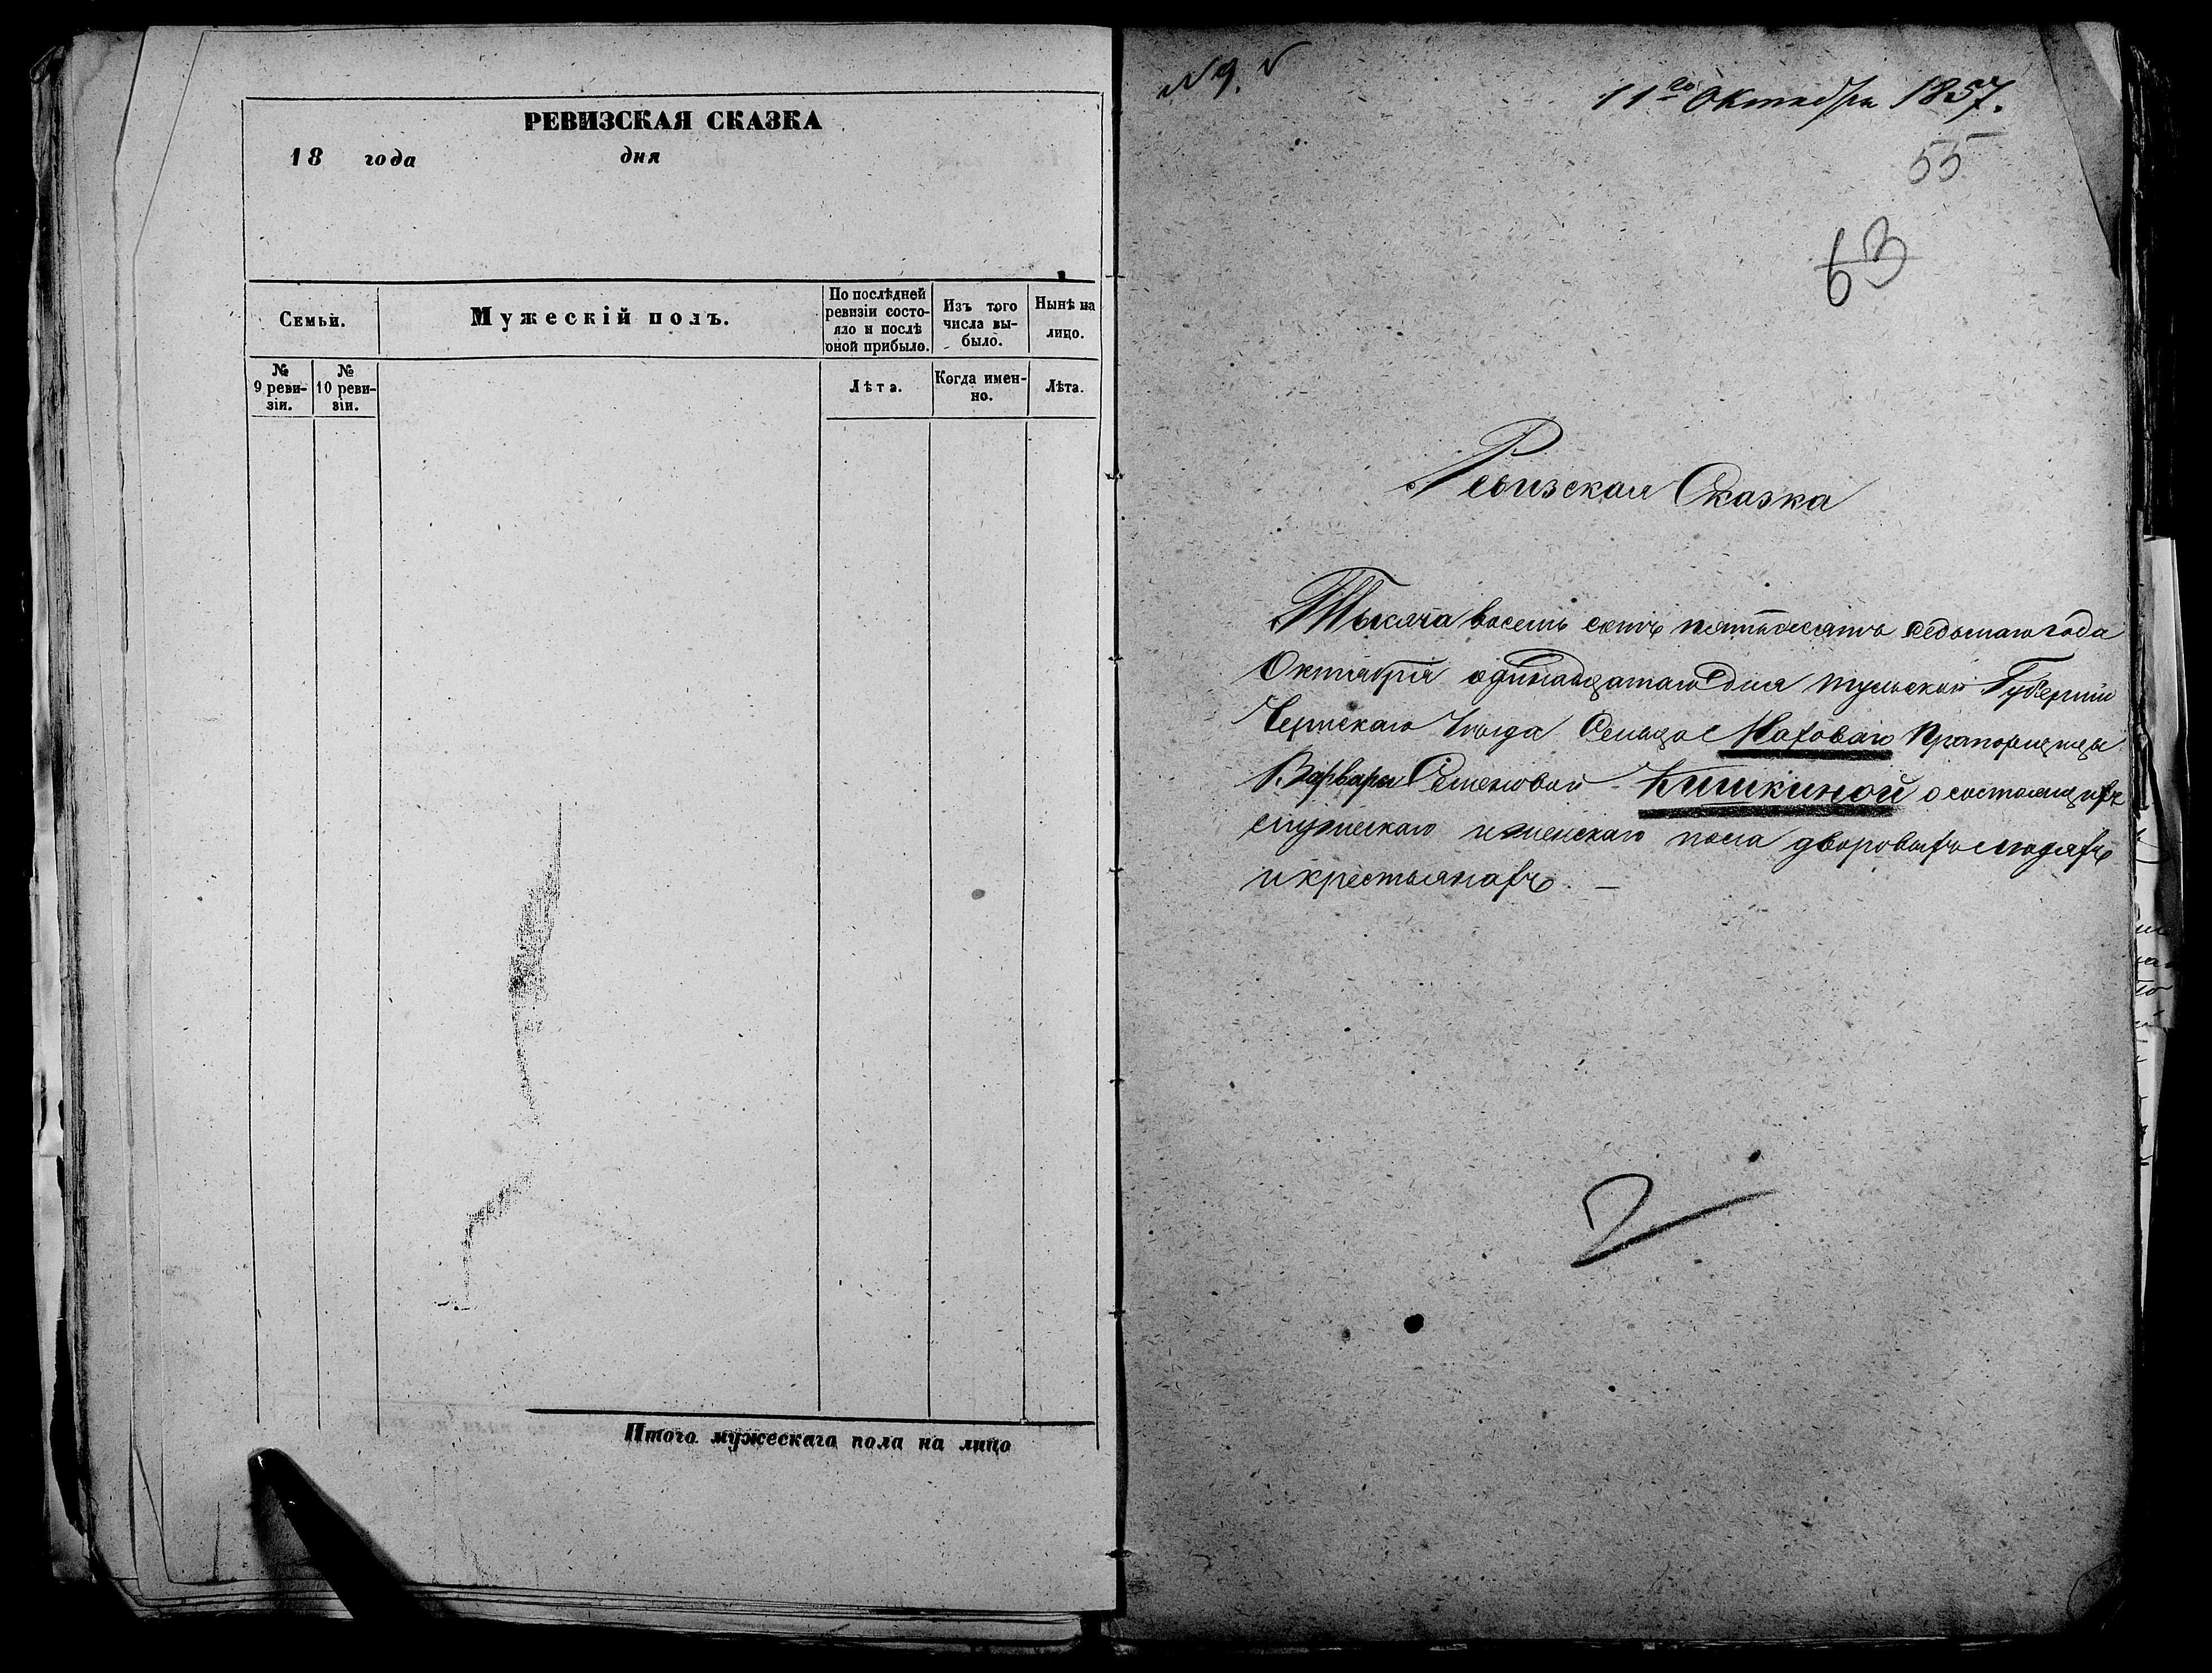 РЕВИЗСКАЯ СКАЗКА
18 года дня
Семьи.
Мужескій полъ.
По послѣдней
ревизіи состо-
яло и послѣ
оной прибыло.
Изъ того
числа вы-
было.
Нынѣ на
лицо.
№
9 реви-
зіи.
№
10 реви-
зіи.
Лѣта.
Когда имен-
но.
Лѣта.
Итого мужескаго пола на лицо
№ 9.
11го Октября 1857.
55
63
Ревизская Сказка
Тысяча восемь сотъ пятьдесятъ седьмаго года
Октября одинадцатаго дня Тульской Губерніи
Чернскаго Уезда Сельца Маховаго Прапорщицы
Варвары Семеновой Кишкиной о состоящихъ
мужескаго и женскаго пола дворовыхъ людяхъ
и крестьянахъ. —
2